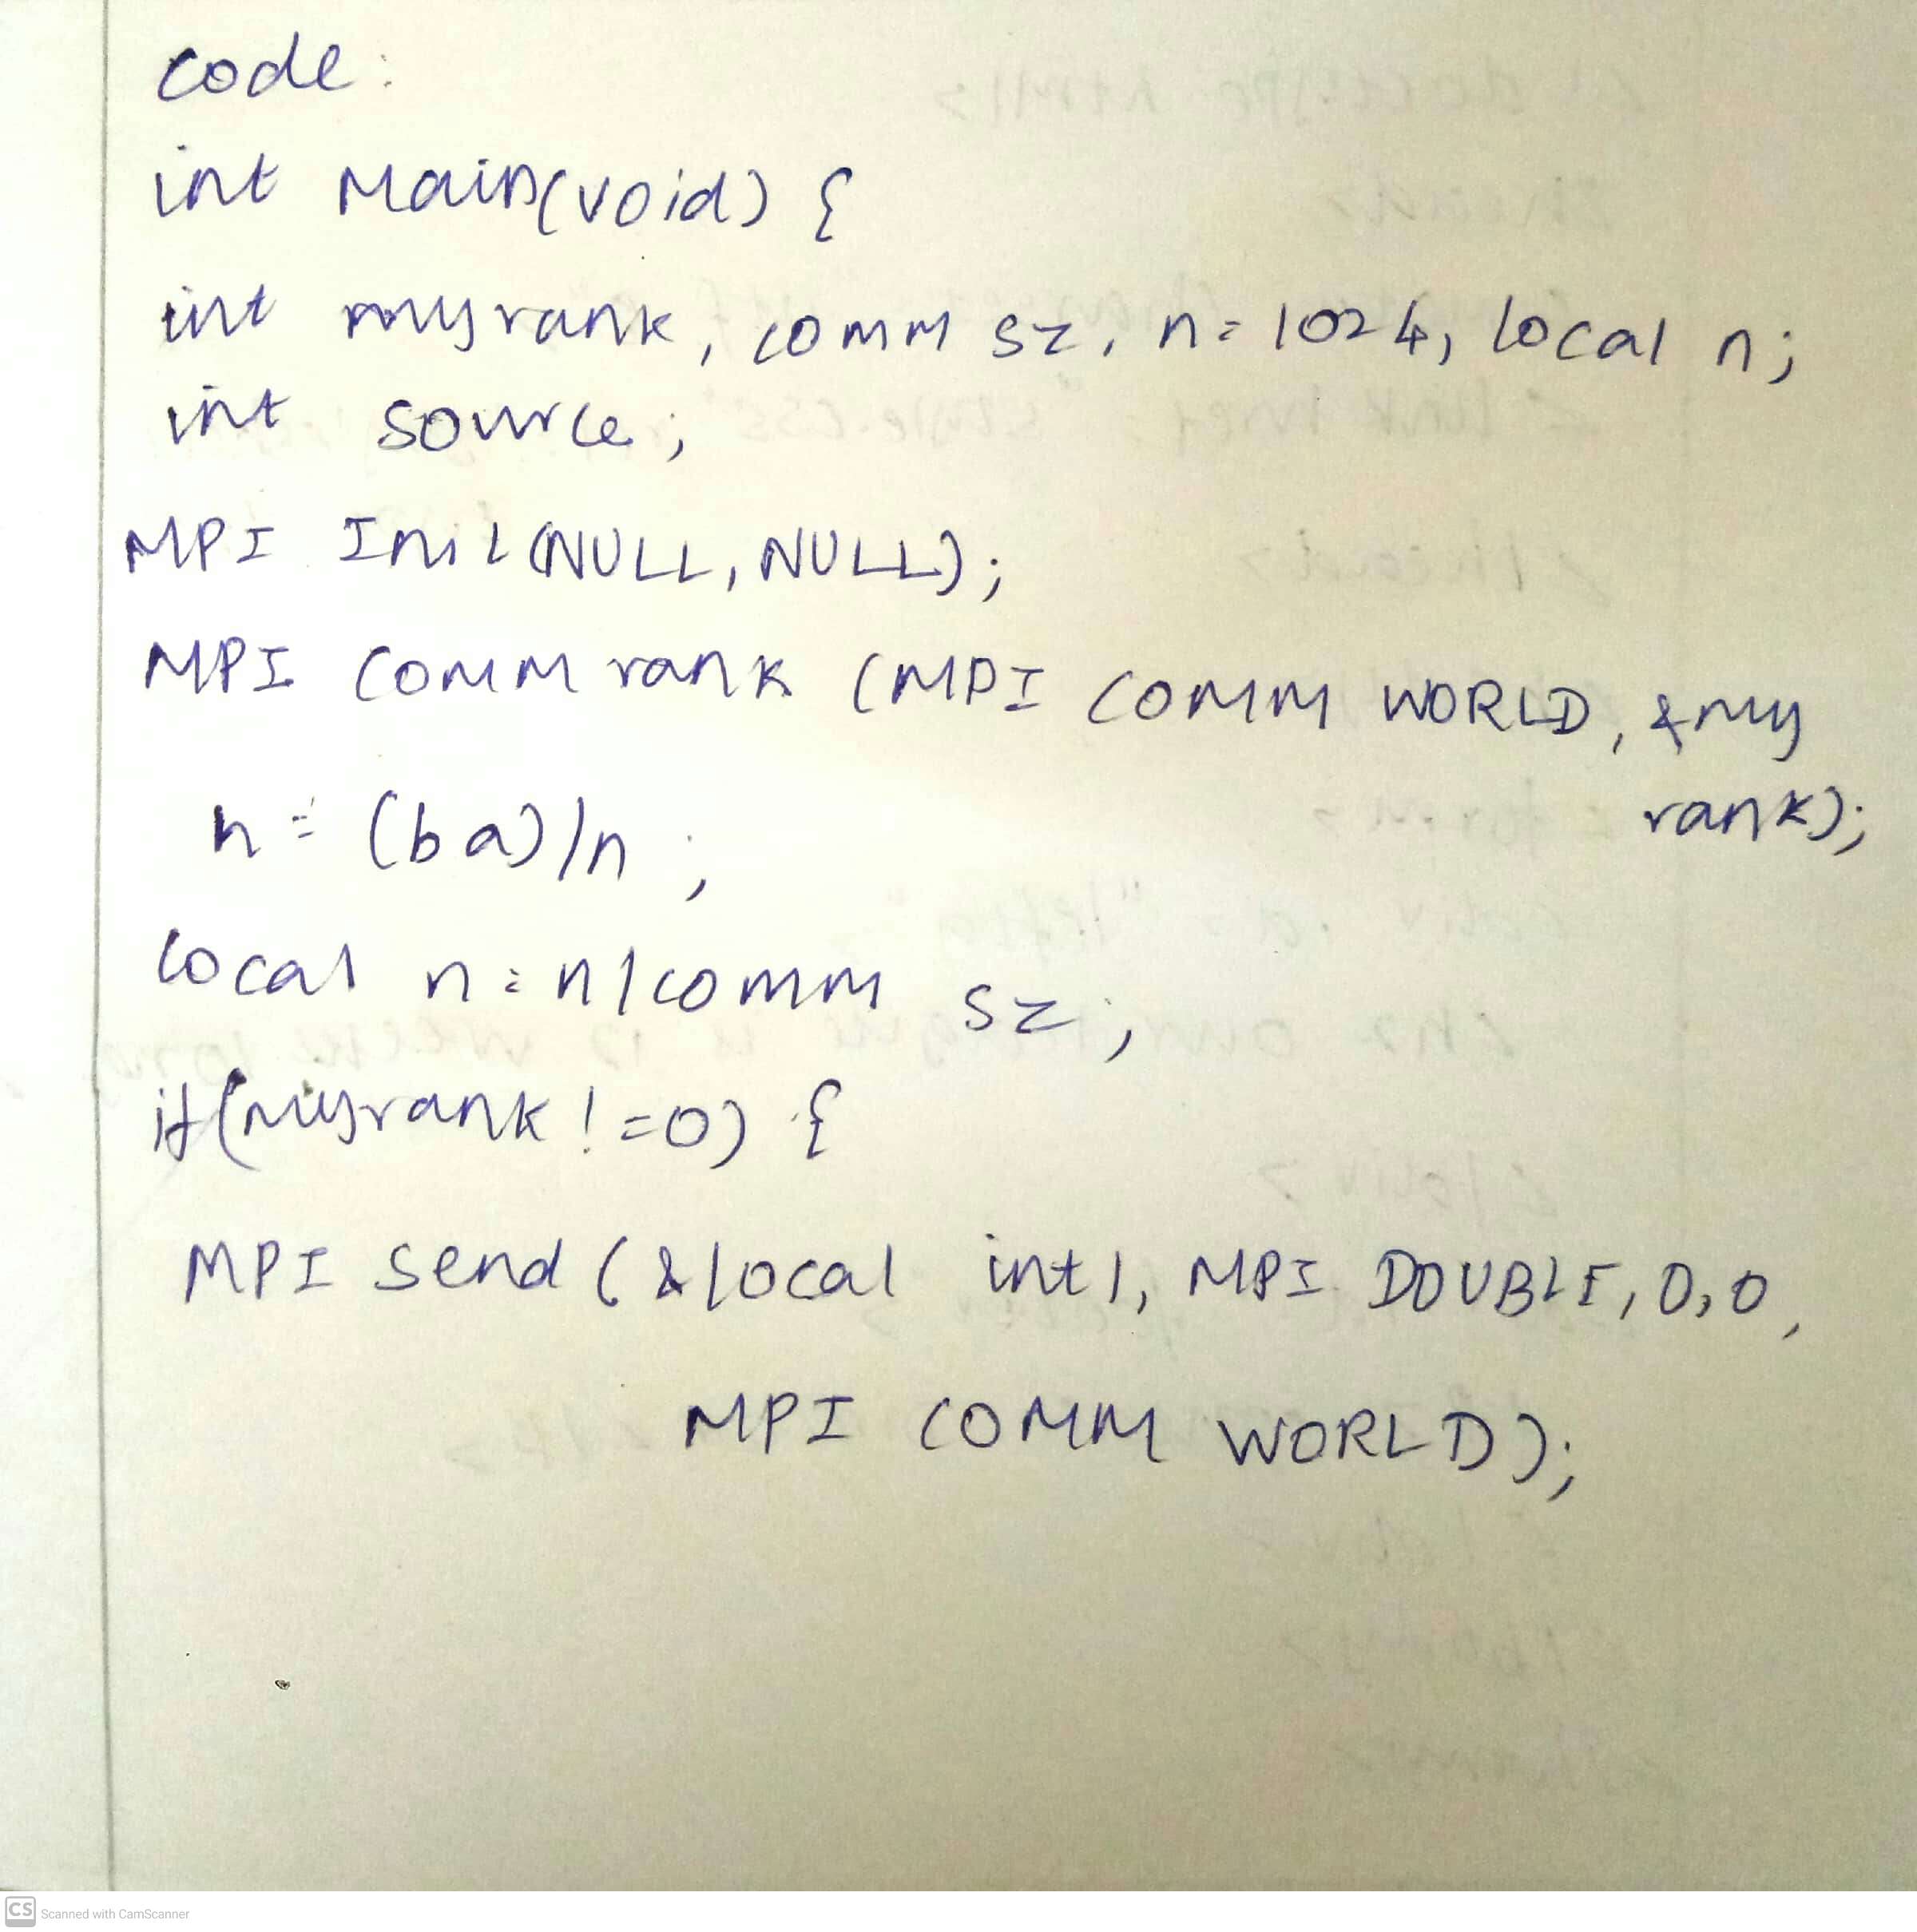 code:
int Main(void) {
int myrank, comm sz, n=1024, local n;
int source;
MPI Init(NULL, NULL);
MPI Comm rank (MPI COMM WORLD, &my
rank);
h = (b a)/n;
local n=n/comm sz;
if(myrank!=0) {
MPI send (&local int1, MPI DOUBLE, 0,0,
MPI COMM WORLD);
CS Scanned with CamScanner